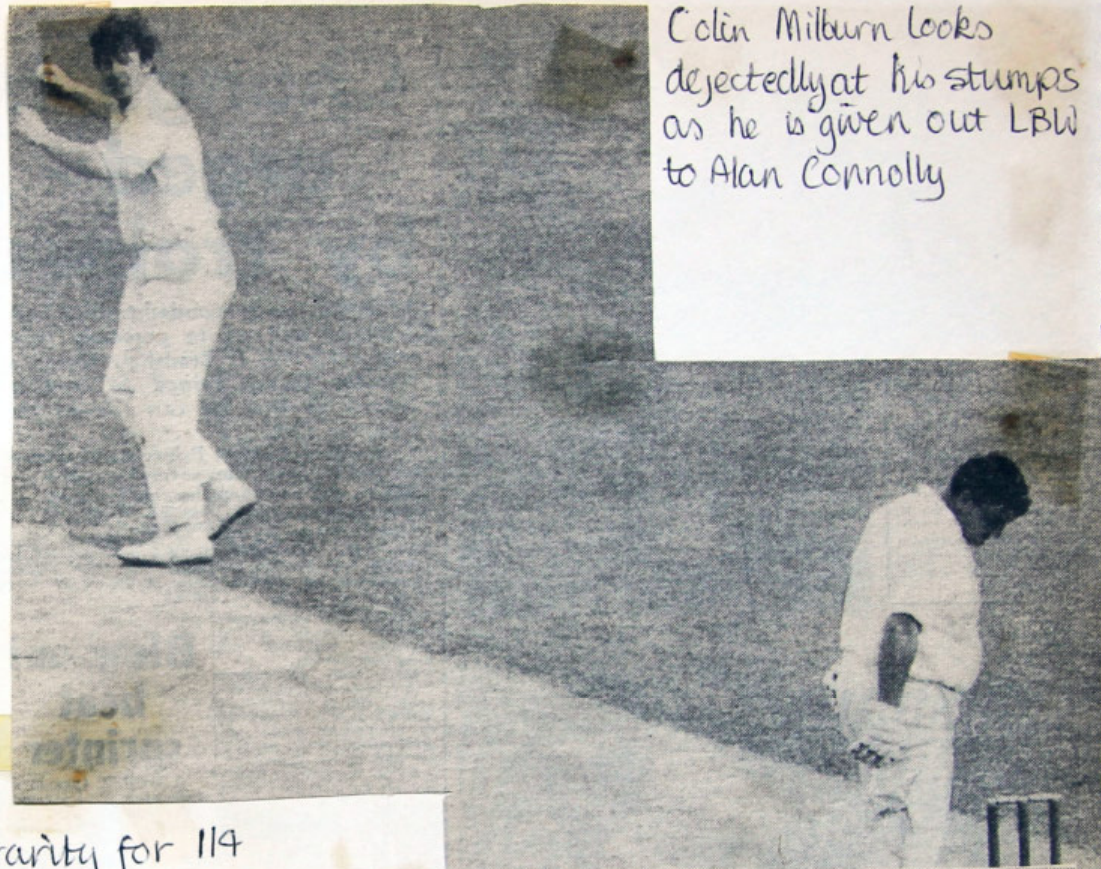 Colin Milburn looks
dejectedly at his stumps
as he is given out LBW
to Alan Connolly
rarity for 114